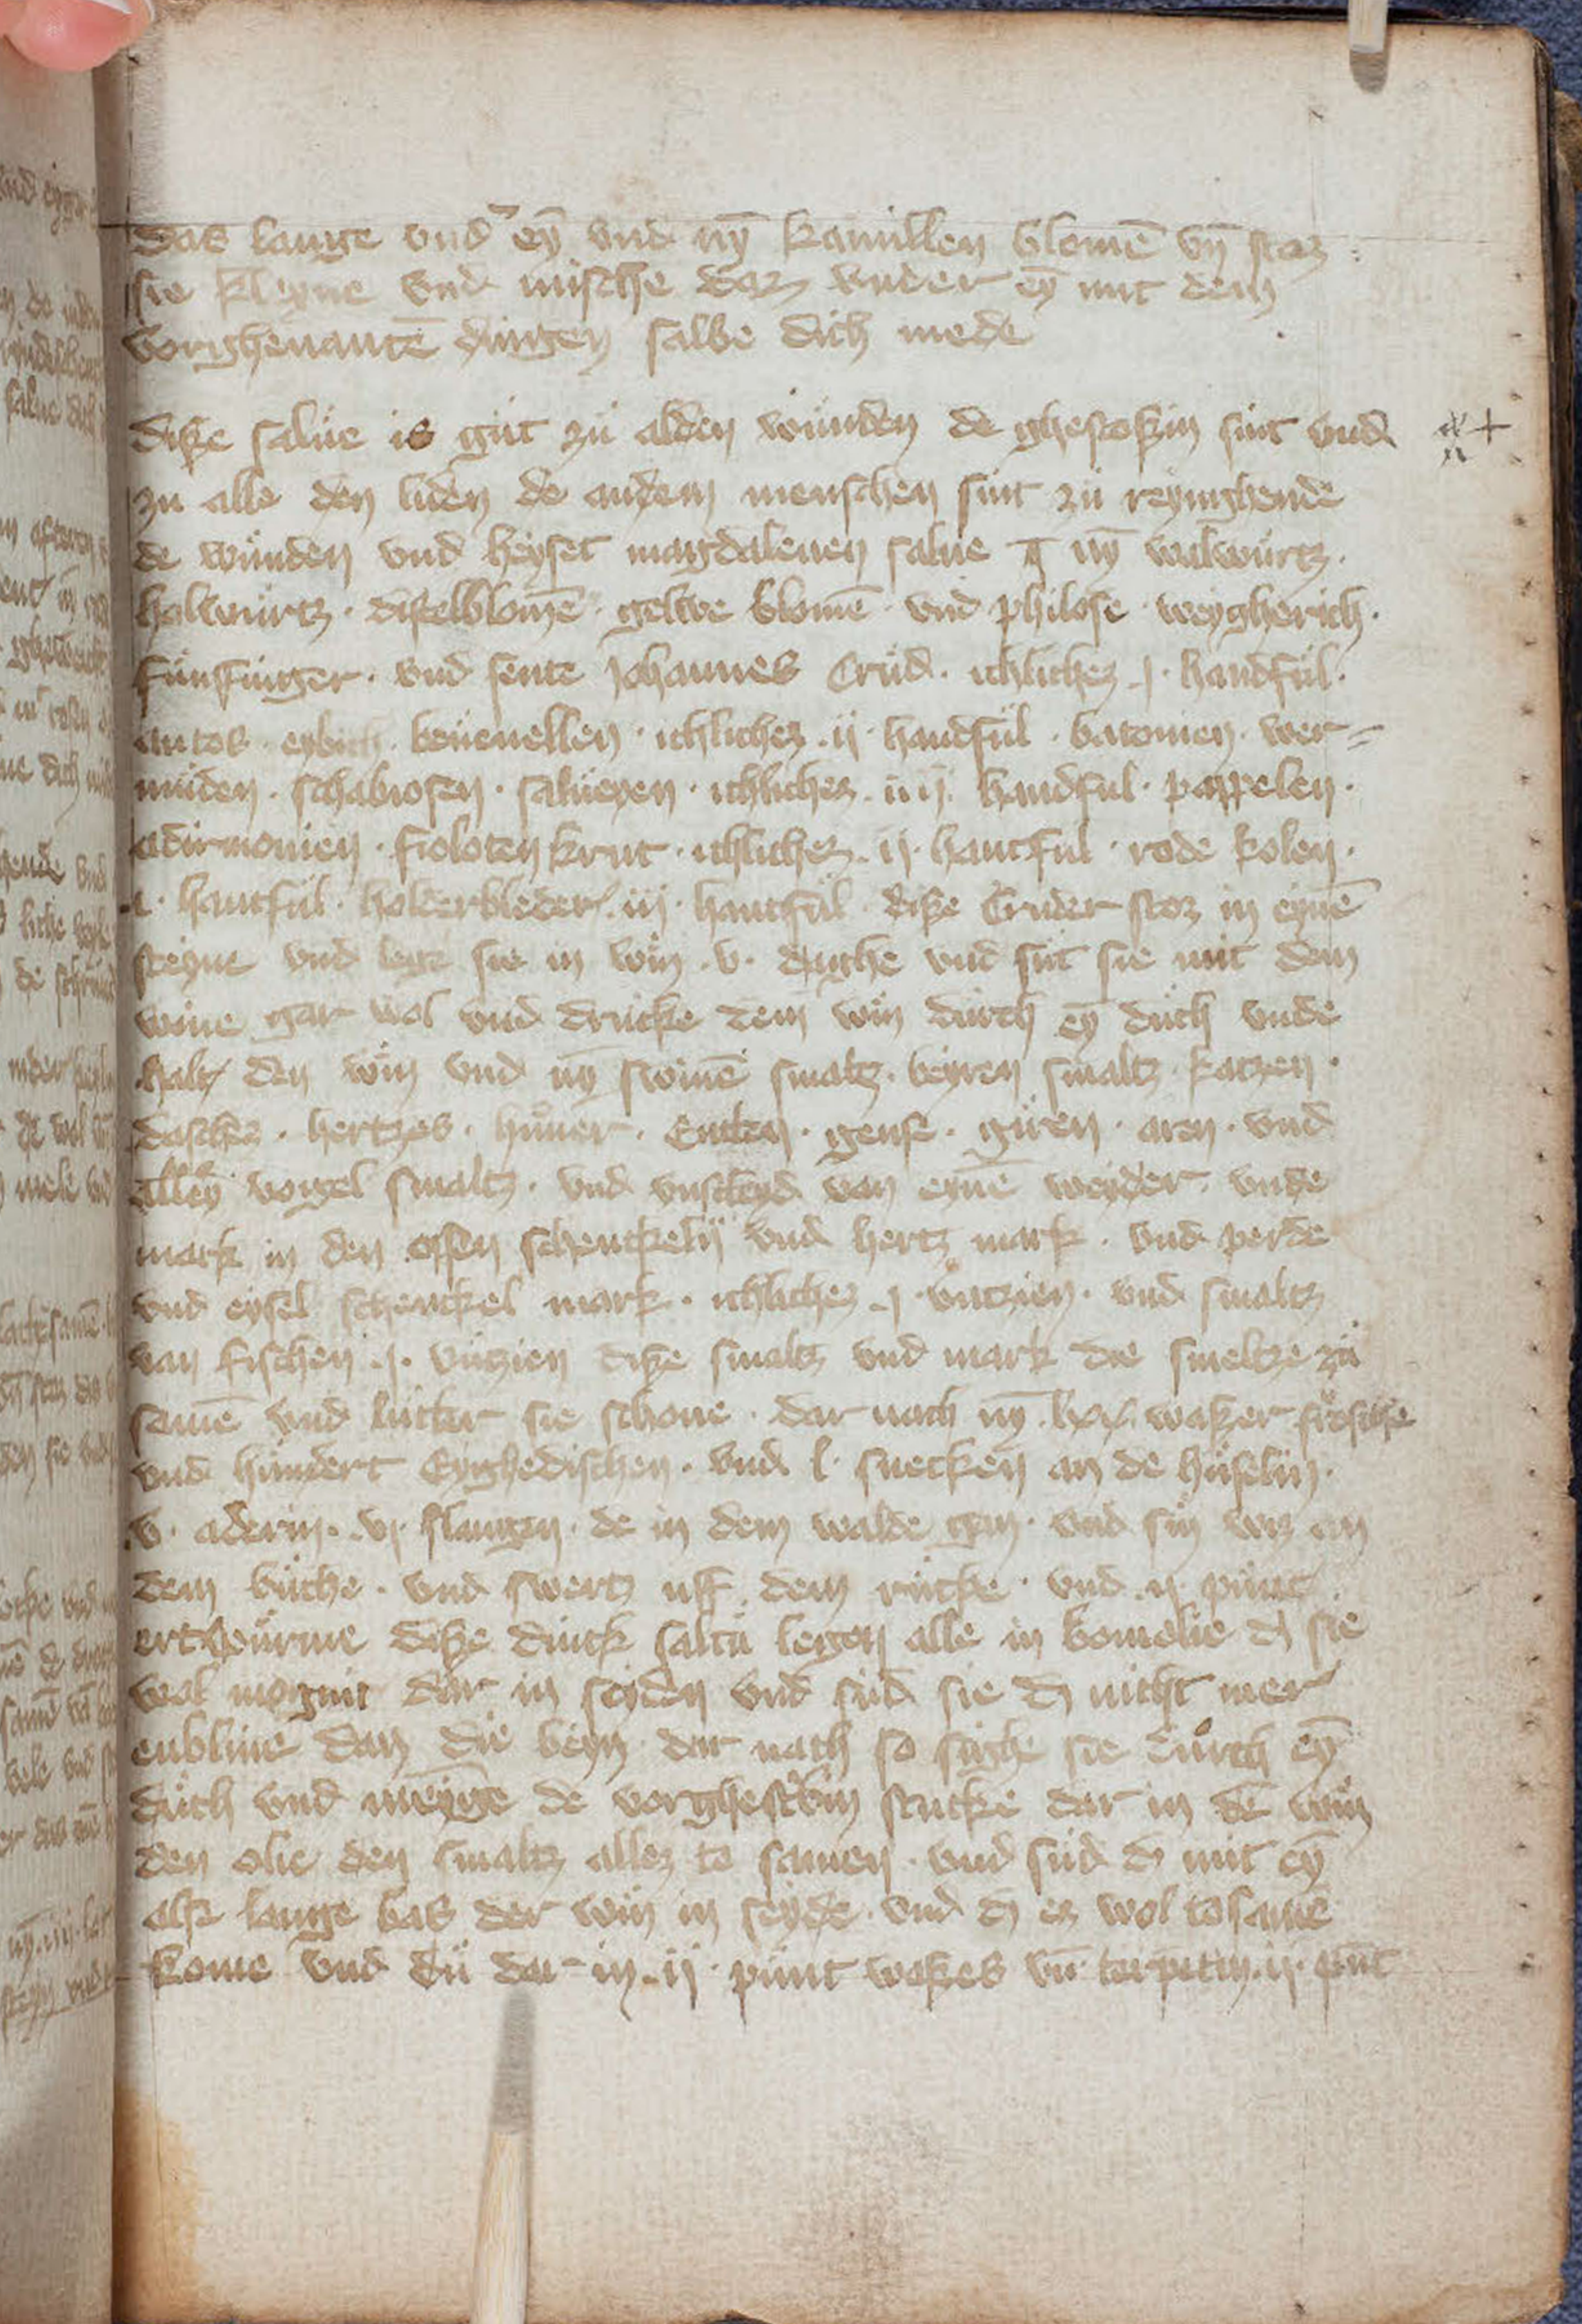 das lange vnder eȳ vnd nȳ kamillen blomē vn̄ stoz
sie kleyne vnd mische daz vnder eȳ mit dem
vorghenantē dingen salbe dich mede
dise salue is gůt zů alden wunden de ghestokin sint vnd
zu alle den liden de an dem menschen sint zů reynghende
de wunden vnd heyset magdalenen salue nȳ walwurtz ·
holwurtz · distelblomē · gelwe blomē · vnd philose · weygherich ·
funffinger · vnd sente Johannes Crud · ichlichez j · handful ·
antos · eybich · beuenellen · ichlichez · ij · handful · batonien · wer=
muden · schabiosen · salueyen · ichlichez · iiij · handful · pappelen ·
adirmonien · fioloten krut · ichlichez · ij · hantful · rode kolen ·
hantful · holderbleder · iij · hantful · dise Cruder stoz in eynē
steyne vnd legz sie in win · v · daghe vnd sut sie mit dem
wine gar wol vnd drucke dem win durch eȳ duch vnde
halt den win vnd nȳ swinē smaltz · beyren smaltz · katzen ·
dasches · hertzes · hůner · Entten · gense · giren · aren · vnd
alley vogel smaltz · vnd vnscleyd van eynē weyder · vnde
mark in den ossen schenckelin vnd hertz mark · vnd perde
vnd eysel schenckel mark · ichlichez j · vntzien · vnd smaltz
van fischen · j · vntzien dise smaltz vnd mark die smeltze zů
samē vnd lutter sie schone · dar nach nȳ · lxx · waszer frosche
vnd hundert Eyghedischen · vnd · l · snecken an de huselin ·
v · aderin · vj · slangen · de in dem walde gen · vnd sin wiz an
dem buche · vnd swertz uff dem rucke · vnd · ij · punt
ertwurme dise dinck saltu legen alle in bomolie dz sie
wol mogint dar in seyden vnd sud sie dz nicht mer
enblyue dan die beyn dar nach so sighe sie durch eȳ
duch vnd menge de vorghescrebin stucke dar in dē win
den olie den smaltz allez to samen · vnd sud dz mit eȳ
alse lange bas der win in seyde · vnd dz ez wol tosamē
kome vnd du dar in · ij · punt wases vn̄ terpetin · ij · punt